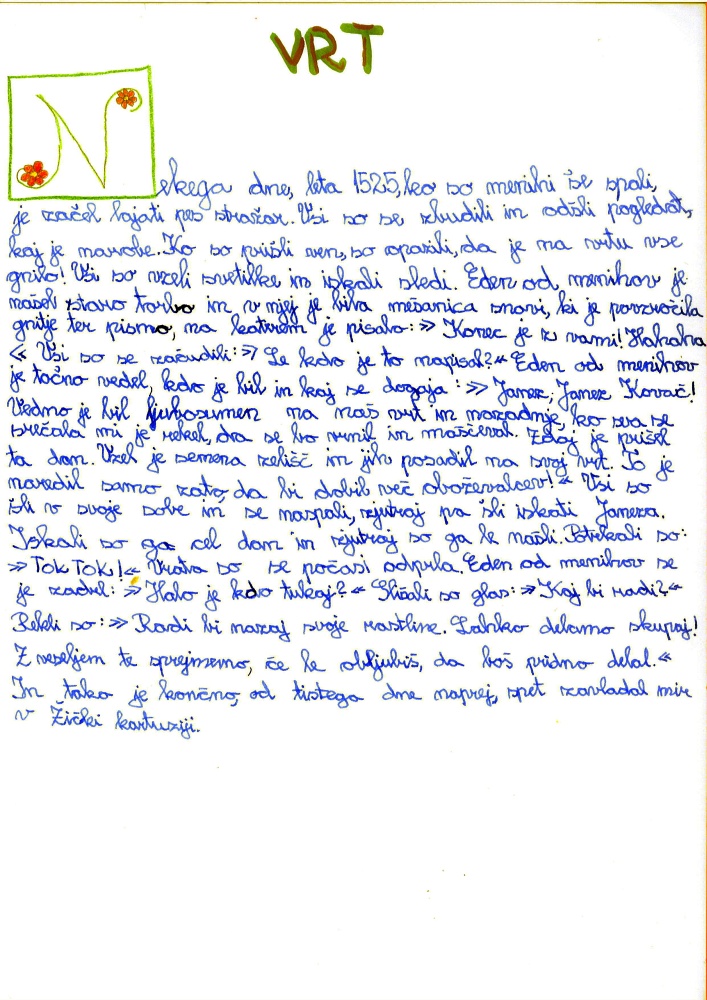 VRT
Nekega dne, leta 1525, ko so menihi še spali,
je začel lajati pes stražar. Vsi so se zbudili in odšli pogledat,
kaj je narobe. Ko so prišli ven, so opazili, da je na vrtu vse
gnilo! Vsi so vzeli svetilke in iskali sledi. Eden od menihov je
našel staro torbo in v njej je bila mešanica snovi, ki je povzročila
gnitje ter pismo, na katerem je pisalo: » Konec je z vami! Hahaha
« Vsi so se začudili: » Le kdo je to napisal? « Eden od menihov
je točno vedel, kdo je bil in kaj se dogaja : » Janez, Janez Kovač!
Vedno je bil ljubosumen na naš vrt in nazadnje, ko sva se
srečala mi je rekel, da se bo vrnil in maščeval. Zdaj je prišel
ta dan. Vzel je semena zelišč in jih posadil na svoj vrt. To je
naredil samo zato, da bi dobil več oboževalcev! « Vsi so
šli v svoje sobe in se naspali, zjutraj pa šli iskati Janeza.
Iskali so ga cel dan in zjutraj so ga le našli. Potrkali so:
» TOK TOK! « Vrata so se počasi odprla. Eden od menihov se
je zadrl: » Halo je kdo tukaj? « Slišali so glas: » Kaj bi radi? «
Rekli so: » Radi bi nazaj svoje rastline. Lahko delamo skupaj!
Z veseljem te sprejmemo, če le obljubiš, da boš pridno delal. «
In tako je končno, od tistega dne naprej, spet zavladal mir
v Žički kartuziji.